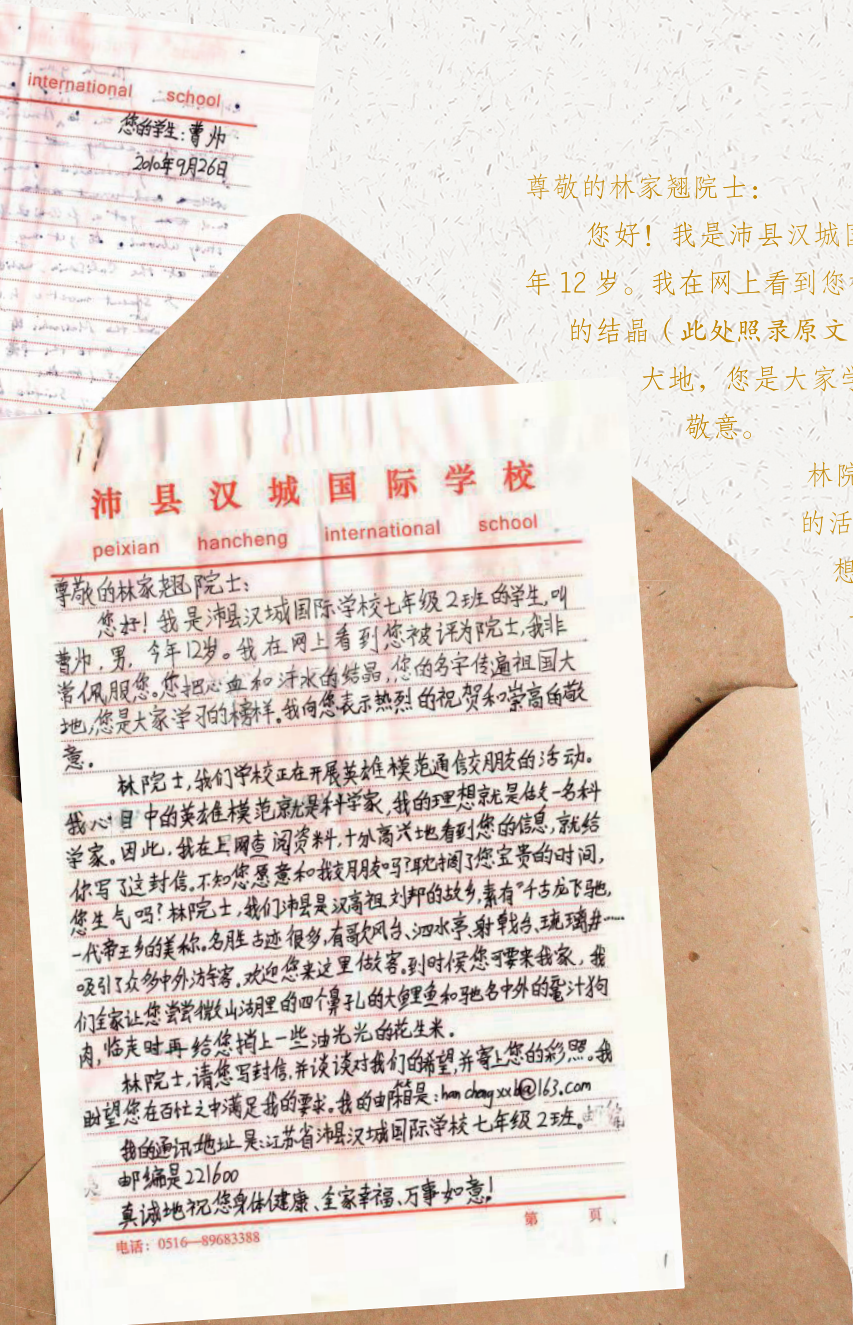 international school
您的学生：曹帅
2010年9月26日
尊敬的林家翘院士：
您好！我是沛县汉城
年12岁。我在网上看到您
的结晶（此处照录原文
大地，您是大家学
敬意。
林院
的活
想
沛县汉城国际学校
peixian hancheng international school
尊敬的林家翘院士：
您好！我是沛县汉城国际学校七年级2班的学生，叫
曹帅，男，今年12岁。我在网上看到您被评为院士，我非
常佩服您。您把心血和汗水的结晶，您的名字传遍祖国大
地，您是大家学习的榜样。我向您表示热烈的祝贺和崇高的敬
意。
林院士，我们学校正在开展英雄模范通信交朋友的活动。
我心目中的英雄模范就是科学家，我的理想就是做一名科
学家。因此，我在上网查阅资料，十分高兴地看到您的信息，就给
你写了这封信。不知您愿意和我交朋友吗？耽搁了您宝贵的时间，
您生气吗？林院士，我们沛县是汉高祖刘邦的故乡，素有“千古龙飞地，
一代帝王乡的美称。名胜古迹很多，有歌风台、泗水亭、射戟台、琉璃井……
吸引了众多中外游客。欢迎您来这里做客。到时候您可要来我家，我
们全家让您尝尝微山湖里的四个鼻孔的大鲤鱼和驰名中外的鼋汁狗
肉，临走时再给您捎上一些油光光的花生米。
林院士，请您写封信，并谈谈对我们的希望，并寄上您的彩照。我
盼望您在百忙之中满足我的要求。我的邮箱是：hanchengxxb@163.com
我的通讯地址是：江苏省沛县汉城国际学校七年级2班。
邮编是221600
真诚地祝您身体健康、全家幸福、万事如意！
电话：0516—89683388
第 页